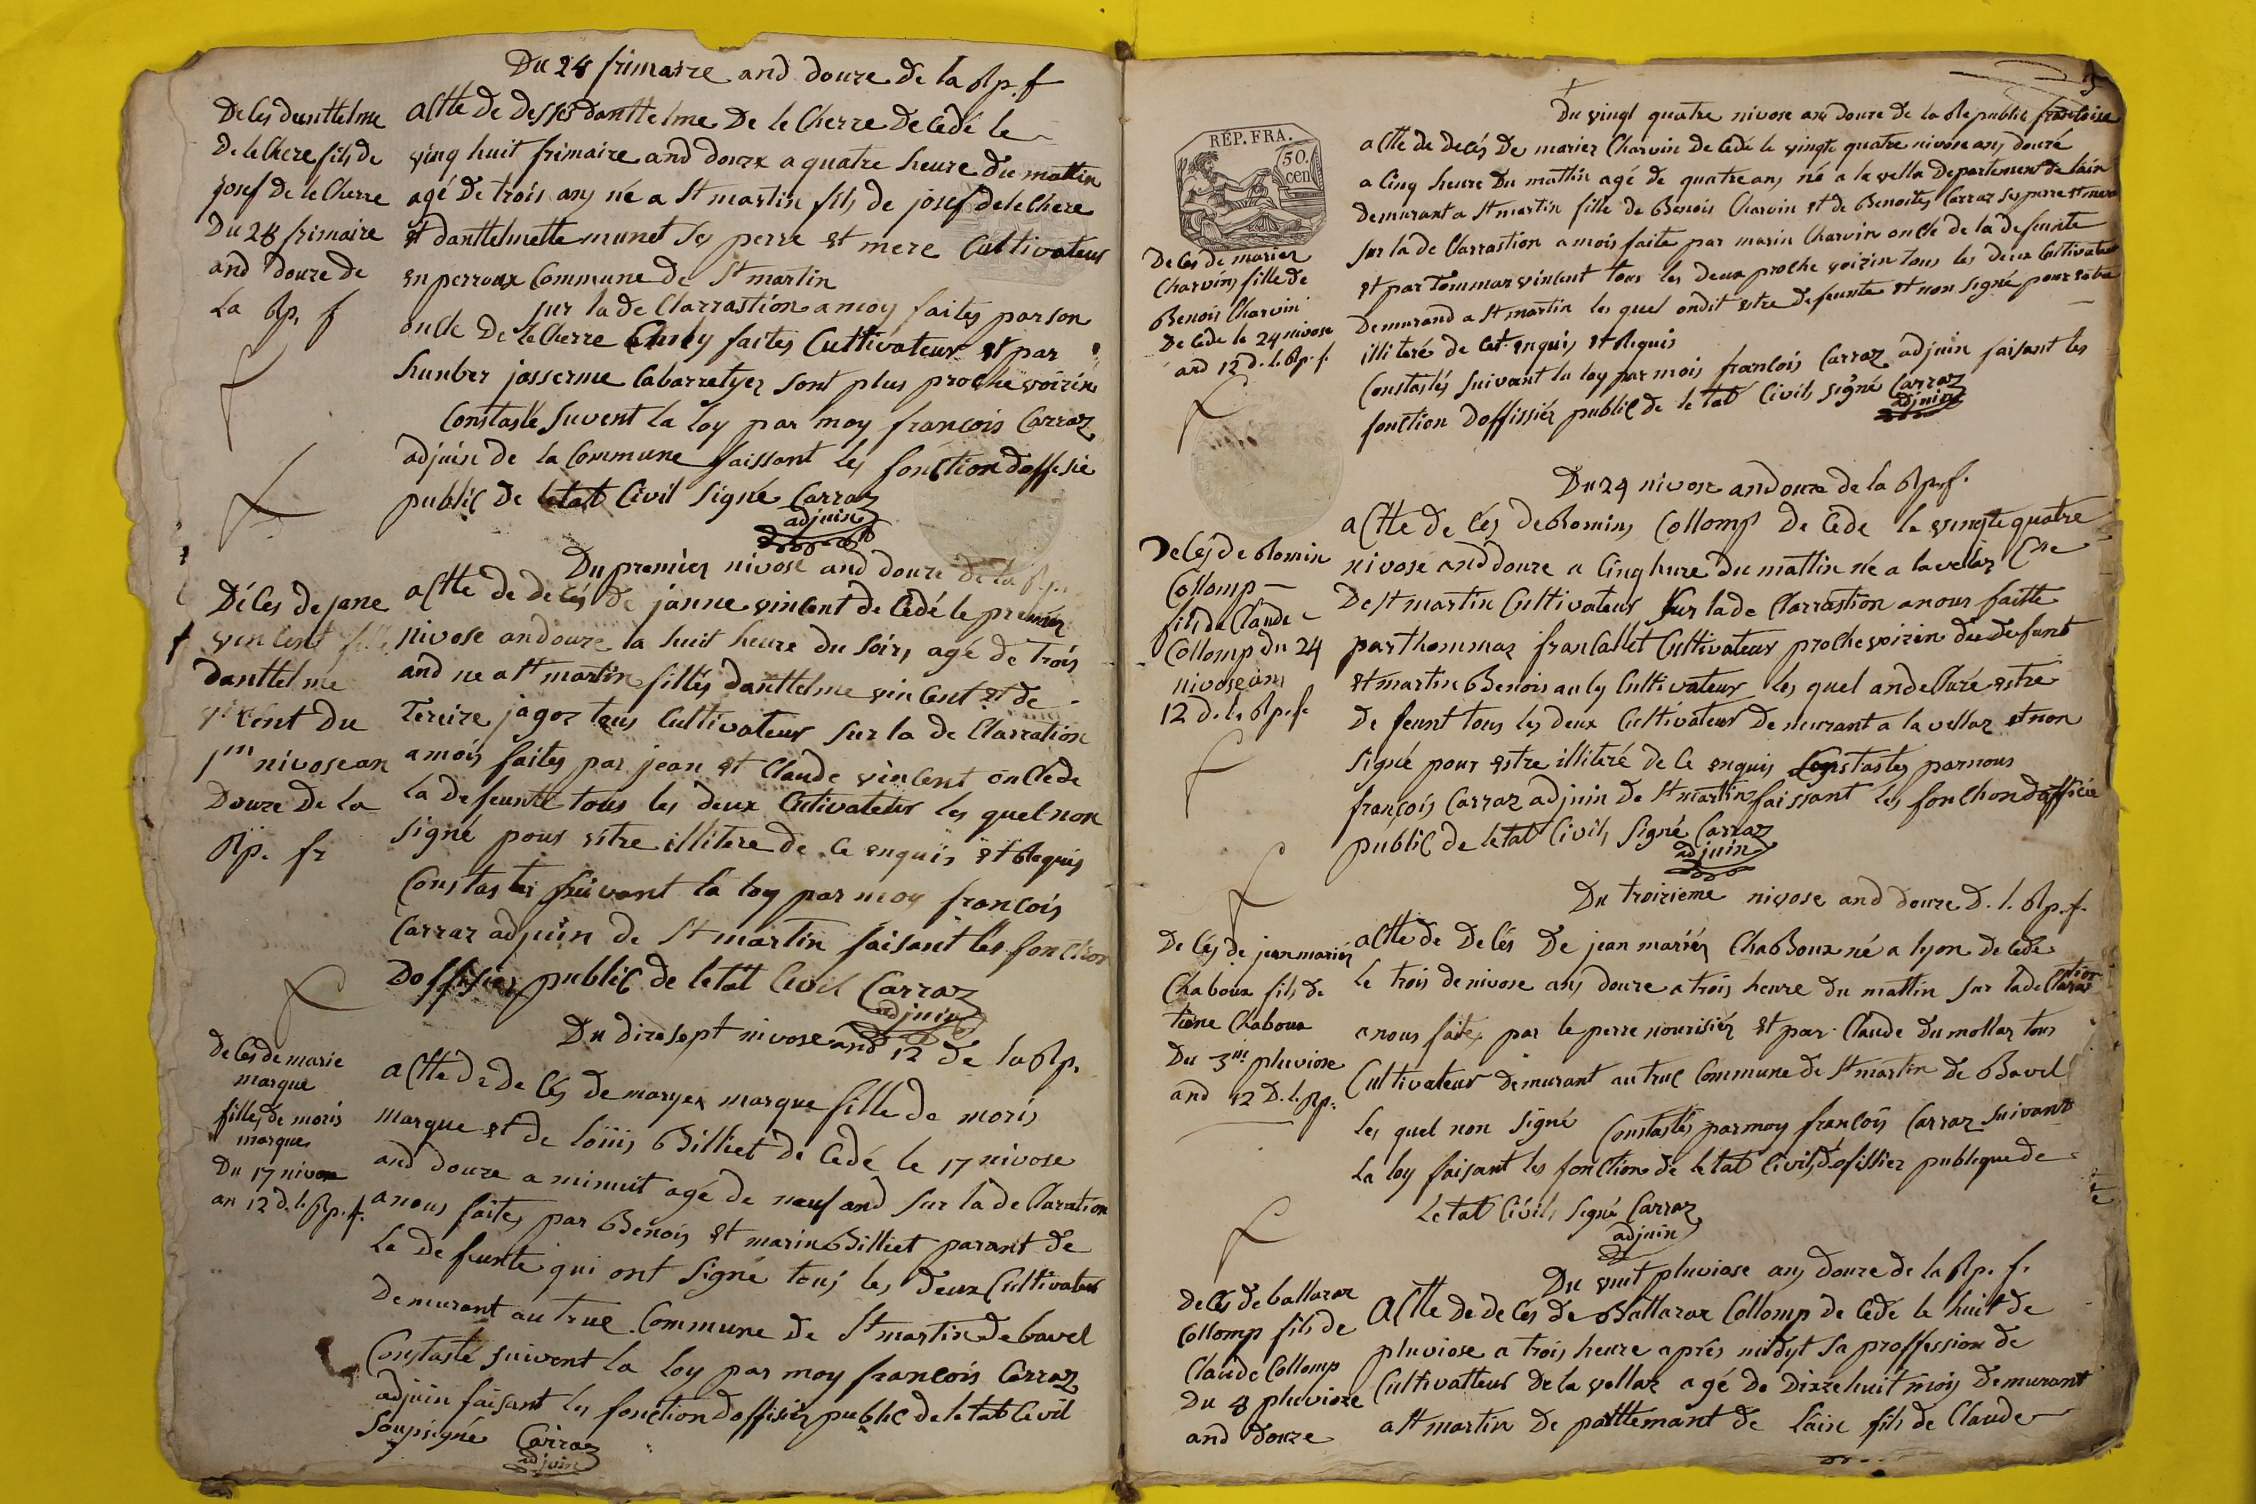 Du 28 frimaire and douze de la Rp. f
Deces danttelme
De le Chere fils de
josef de le Cherre
Du 28 frimaire
and douze de
La Rp. f
actte de desses danttelme De le Cherre decedé le
vinq huit frimaire and douze a quatre heure du mattin
agé De trois ans né a St martin fils de josef de le Chere
et danttelmette munet ses perre et mere Cultivateur
en perroux Commune de St martin
sur la de Clarrastion a moy faites par son
oncle de le Cherre faites Cultivateur et par
hunber josserme Cabarretyer sont plus proche voirin
Constasté suvent la loy par moy francois Carraz
adjuin de la Commune faissant les fonction doffisie
public de letat Civil signé Carraz
adjuin
Du premier nivose and douze de la Rp.
Déces de jane
vincent fille
danttelme
vincent du
1m nivose an
Douze de la
Rp. fr
actte de decés de janne vincent de cedé le premier
nivose an douze a huit heure du soir agé de trois
and ne a St martin filles danttelme vincent et de
Tereize jagoz tous Cultivateur sur la de Clarration
a mois faites par jean et Claude vincent oncle de
la defeunte tous les deux Cultivateur les quel non
signé pour estre illitere de ce enquis et Requis
Constastés suivant la loy par moy francois
Carraz adjuin de St martin faisant les fonction
doffisier public de letat Civil Carraz
adjuin
Du dixe sept nivose and 12 de la Rp.
deces de marie
marque
filles de moris
marque
Du 17 nivose
an 12 d. l. Rp. f.
actte de de cés de maryer marque fille de moris
marque et de loüis Billiet de Cedé le 17 nivose
and douze a minuit agé de neuf and sur la de Claration
a nous faites par Benois et marin Billiet parant de
La defeunte qui ont signé tous les deux Cultivateur
demurant au truc Commune de St martin de bavel
Constasté suivent la loy par moy francois Carraz
adjuin faisant les fonction doffisier public de letat Civil
soupsigné Carraz
adjuin
REP. FRA.
50.
cen
Du vingt quatre nivose ans douze de la Republic francoise
Deces de marier
Charvin fille de
Benois Charvin
De Cede le 24 nivose
and 12 d. l. Rp. f.
actte de decés De marier Charvin de Cedé le vingte quatre nivose ans douzé
a Cinq heure Du mattin agé de quatre ans né a la vella Departement de lain
demurant a St martin fille de Benois Charvin et de Benoites Carraz ses perre et mere
sur la de Clarrastion a mois faite par marin Charvin oncle de la defeunte
et par Tommaz vincent tous les deux proche voirin tous les deux Cultivateur
demurand a St martin les quel ondit estre defeunte et non signé pour estre
illiteré de cet enquis et Requis
Constastés suivant la loy par mois francois Carraz adjuin faisant les
fonction doffissier public de letat Civil signé Carraz
adjuint
Du 24 nivose an douze de la Rp. f.
Deces de Romin
Collomp
fils de Claude
Collomp du 24
nivose ans
12 d. l. Rp. f.
actte de cés de Romins Collomp de Cede le vingte quatre
nivose and douze a Cinq hure du mattin né a la vellaz Cne
De St martin Cultivateur sur la de Clarrastion a nous faitte
par thommaz francallet Cultivateur proche voirin du defunt
et martin Benois Cultivateur les quel andeClaré estre
de feunt tous les deux Cultivateur demeurant a la vellaz et non
signé pour estre illiteré de Ce enquis Constastes par nous
françois Carraz adjuin de St martin faissant les fonction doffisier
public de letat Civil signé Carraz
adjuin
Du troizieme nivose and douze D. l. Rp. f.
De Cés de jean marier
Chaboux fils de
tiene Chaboux
Du 3m pluviose
and 12 D. l. Rp.
actte de De Cés De jean mariér Chaboux né a lyon de Cede
Le trois de nivose ans douze a trois heure du mattin sur la de Clarastion
a nous faites par le perre nourisier et par Claude Dumollaz tous
Cultivateur demurant au truc Commune de St martin de Bavel
Les quel non signé Constastés par moy francois Carraz suivant
La loy faisant les fonction de letat Civil doffissier publique de
Letat Civil signé Carraz
adjuin
Du vuit pluviose ans douze de la Rp. f.
Deces de baltazar
Collomp fils de
Claude Collomp
Du 8 pluvioze
and douze
Actte de de cés de Baltazar Collomp de Cede le huit de
pluviose a trois heure aprés midyt sa proffession de
Cultivatteur de la vellaz agé de Dixe huit mois demurant
a St martin De parttemant de Lain fils de Claude